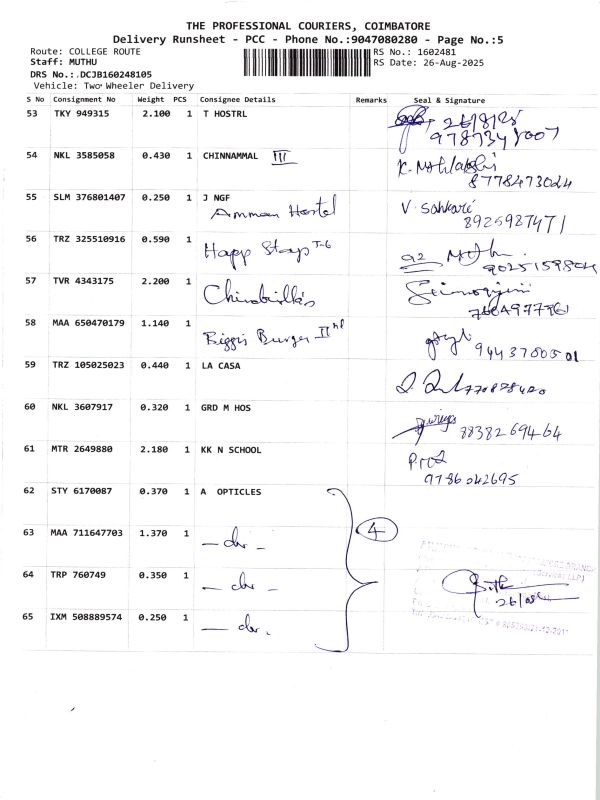 THE PROFESSIONAL COURIERS, COIMBATORE
Delivery Runsheet - PCC - Phone No.:9047080280 - Page No.:5
Route: COLLEGE ROUTE RS No.: 1602481
Staff: MUTHU RS Date: 26-Aug-2025
DRS No.:.DCJB160248105
Vehicle: Two Wheeler Delivery
S No Consignment No Weight PCS Consignee Details Remarks Seal & Signature
53 TKY 949315 2.100 1 T HOSTRL 26/8/25
54 NKL 3585058 0.430 1 CHINNAMMAL III
8778473024
55 SLM 376801407 0.250 1 J NGF
Amman Hostel V. Sankari
8925987471
56 TRZ 325510916 0.590 1
Happ Stays T-6
57 TVR 4343175 2.200 1
58 MAA 650470179 1.140 1
Biggis Burger II nd
9443780501
59 TRZ 105025023 0.440 1 LA CASA
60 NKL 3607917 0.320 1 GRD M HOS
8838269464
61 MTR 2649880 2.180 1 KK N SCHOOL
9786042695
62 STY 6170087 0.370 1 A OPTICLES
63 MAA 711647703 1.370 1 4
— do —
64 TRP 760749 0.350 1
— do —
65 IXM 508889574 0.250 1
— do.